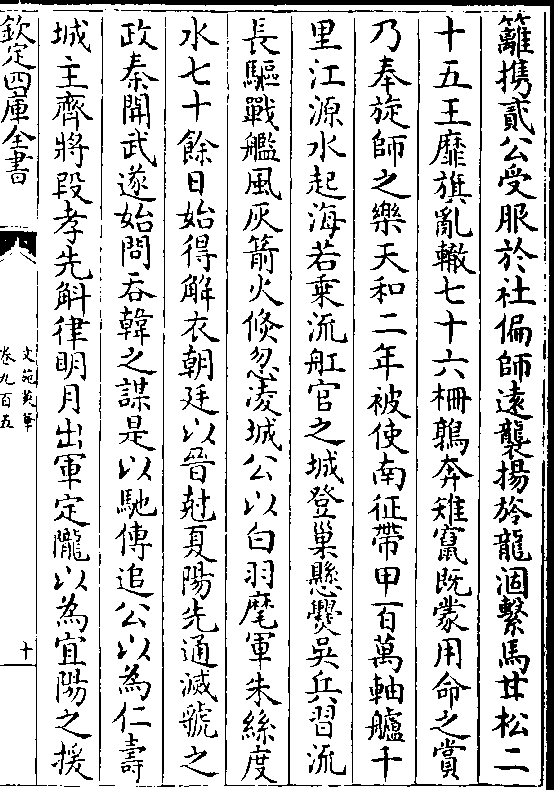 籬携貳公受服於社偏師遠襲揚旍龍涸繫馬甘松二
十五王靡旗亂轍七十六柵鶉奔雉竄既蒙用命之賞
乃奉旋師之樂天和二年被使南征帶甲百萬軸艫千
里江源水起海若乗流舡官之城登巢懸㸑吳兵習流
長驅戰艦風灰箭火倐忽淩城公以白羽麾軍朱絲度
水七十餘日始得解衣朝廷以晉尅夏陽先通滅虢之
政秦開武遂始問吞韓之謀是以馳傳追公以為仁壽
城主齊將段孝先斛律明月出軍定隴以為宜陽之援
欽定四庫全書
文苑英華
卷九百五
十